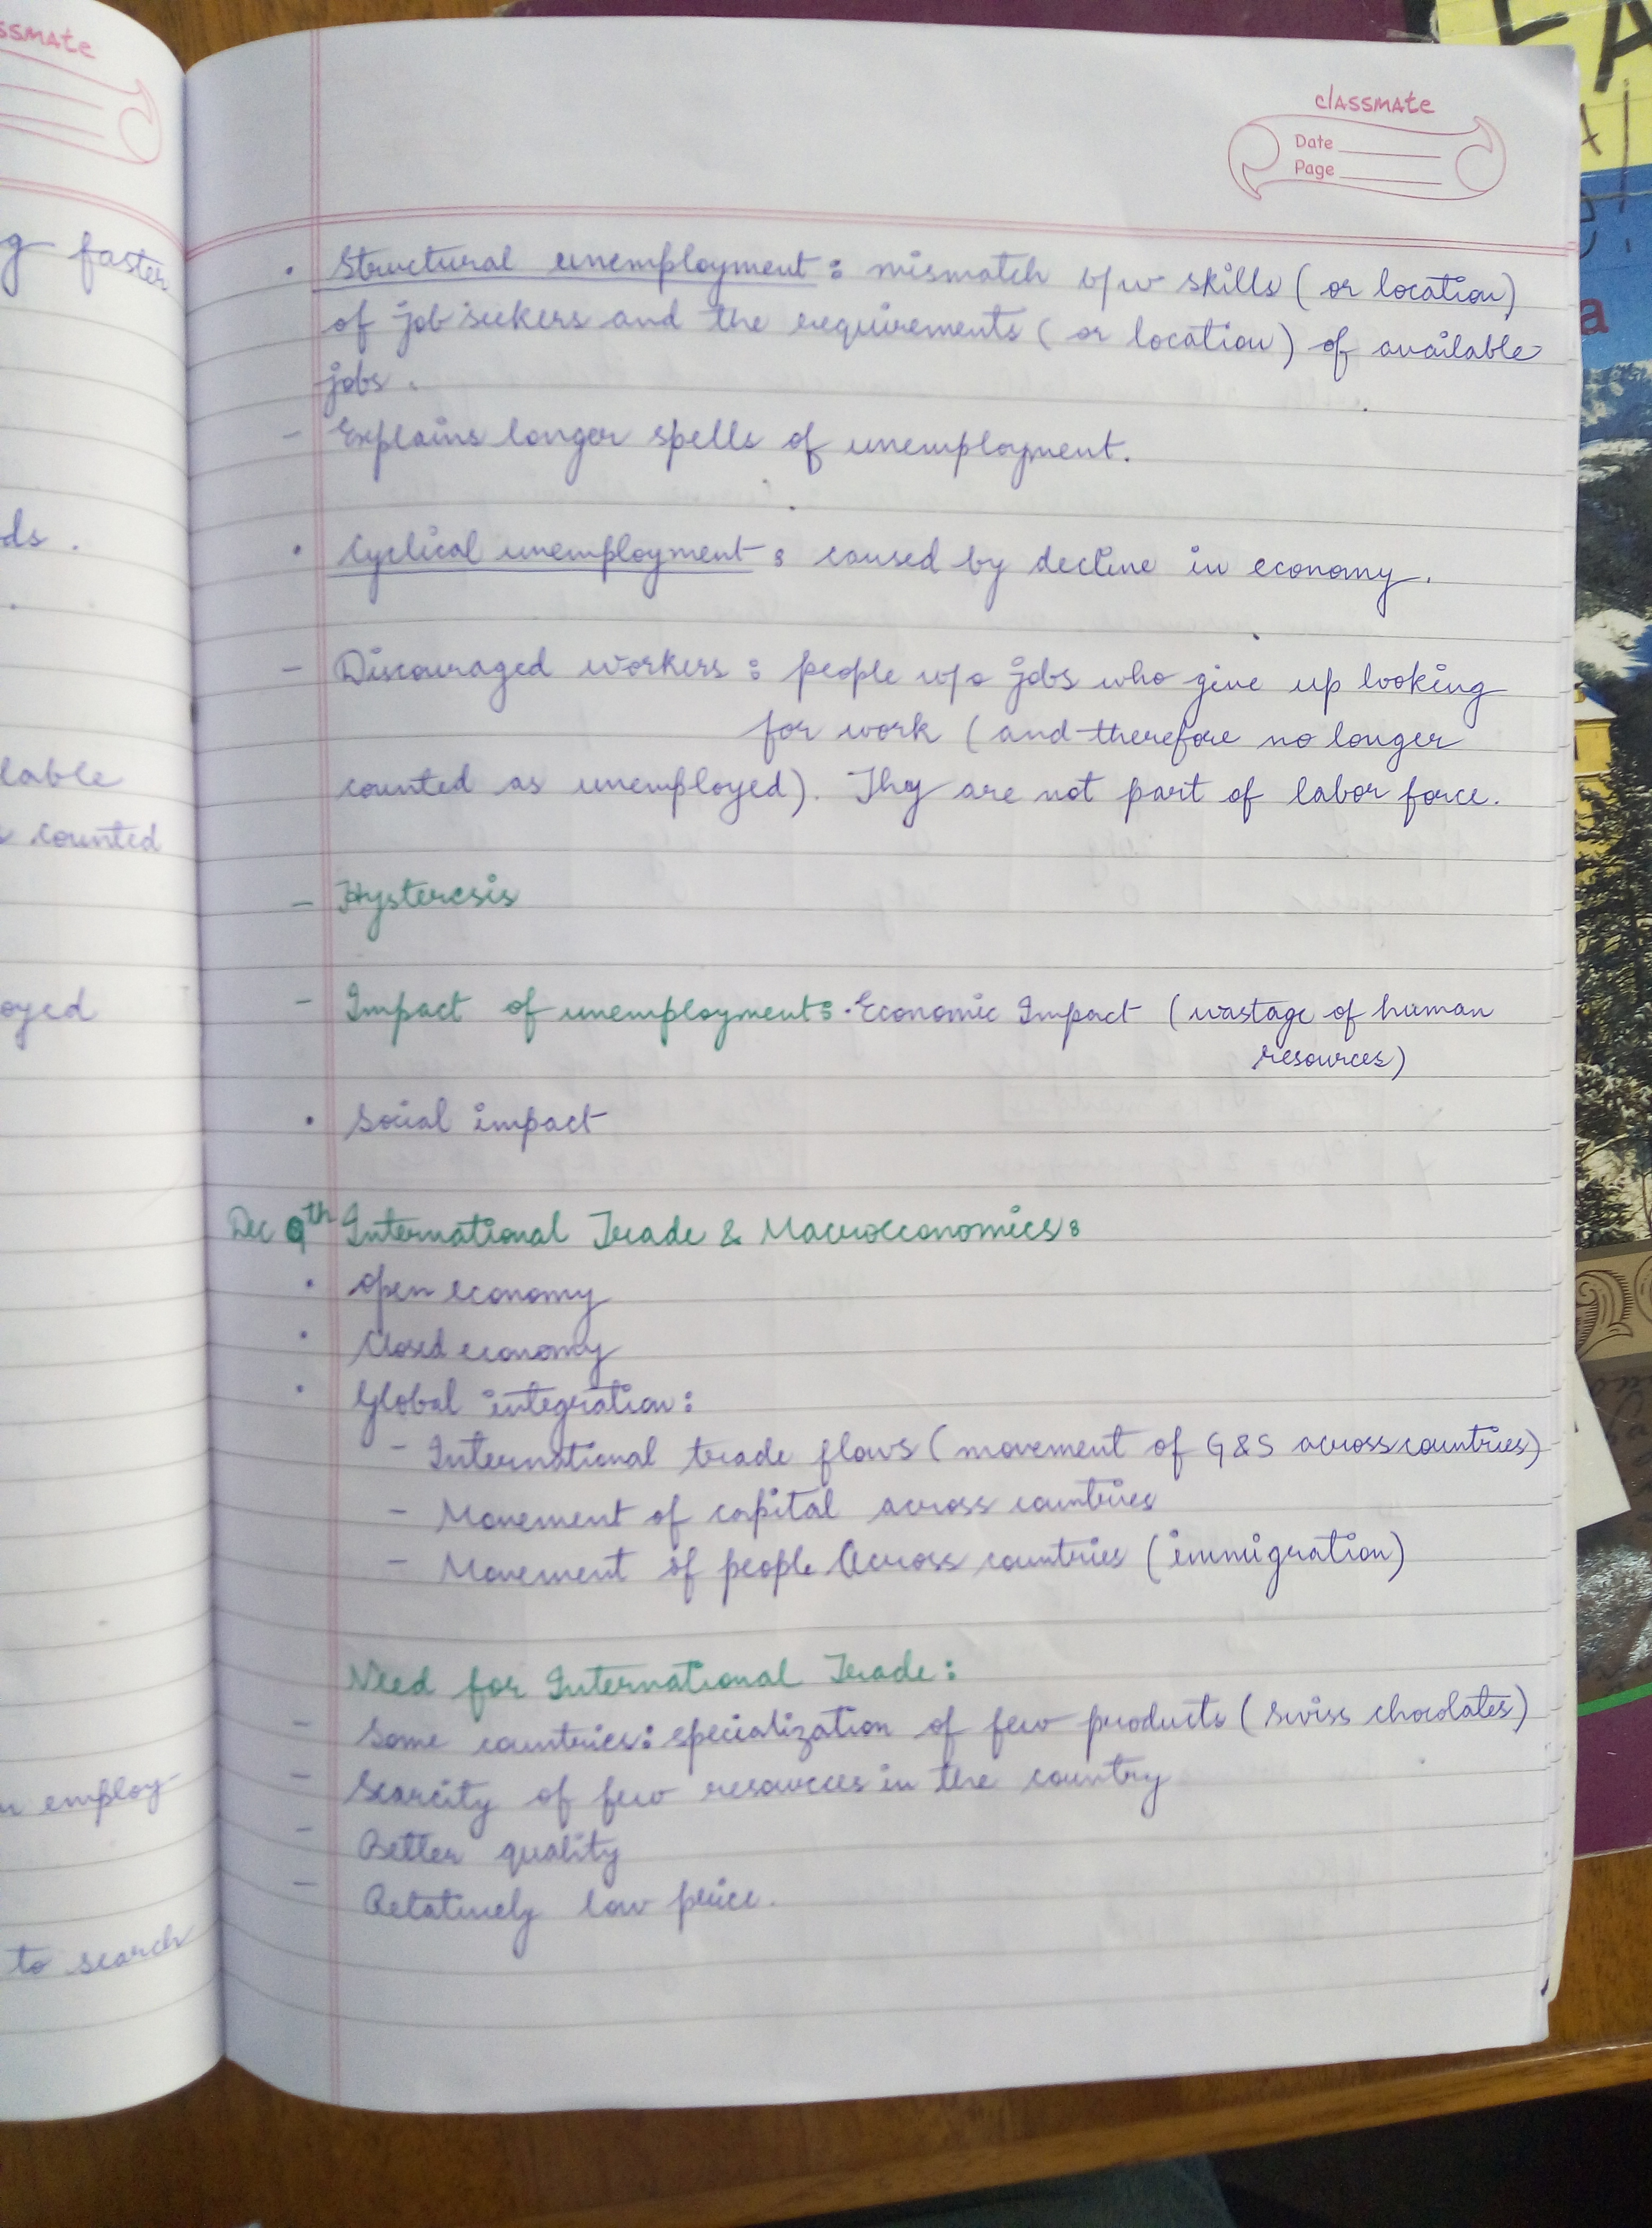 ssmate
g faster
ds.
lable
counted
oyed
employ-
to search
classmate
Date
Page
• Structural unemployment : mismatch b/w skills (or location)
of job seekers and the requirements (or location) of available
jobs.
- Explains longer spells of unemployment.
• Cyclical unemployment : caused by decline in economy.
- Discouraged workers : people w/o jobs who give up looking
for work (and therefore no longer
counted as unemployed). They are not part of labor force.
- Hysteresis
- Impact of unemployment : • Economic Impact (wastage of human
resources)
• Social impact
Dec 9th International Trade & Macroeconomics :
• Open economy
• Closed economy
• Global integration :
- International trade flows (movement of G & S across countries)
- Movement of capital across countries
- Movement of people Across countries (immigration)
Need for International Trade :
- Some countries : specialization of few products (Swiss chocolates)
- Scarcity of few resources in the country
- Better quality
- Relatively low price.